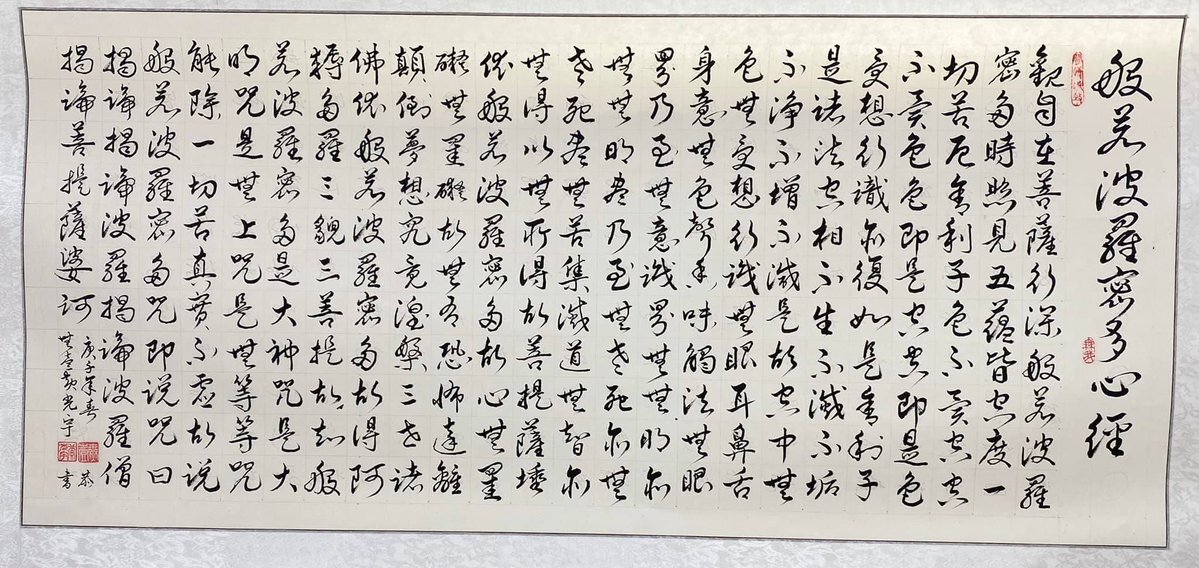 般若波羅密多心經
觀自在菩薩行深般若波羅
密多時照見五蘊皆空度一
切苦厄舍利子色不異空空
不異色色即是空空即是色
受想行識亦復如是舍利子
是諸法空相不生不滅不垢
不淨不增不減是故空中無
色無受想行識無眼耳鼻舌
身意無色聲香味觸法無眼
界乃至無意識界無無明亦
無無明盡乃至無老死亦無
老死盡無苦集滅道無智亦
無得以無所得故菩提薩埵
依般若波羅密多故心無罣
礙無罣礙故無有恐怖遠離
顛倒夢想究竟涅槃三世諸
佛依般若波羅密多故得阿
耨多羅三藐三菩提故知般
若波羅密多是大神咒是大
明咒是無上咒是無等等咒
能除一切苦真實不虛故說
般若波羅密多咒即說咒曰
揭諦揭諦波羅揭諦波羅僧
揭諦菩提薩婆訶
庚子年春
恭書